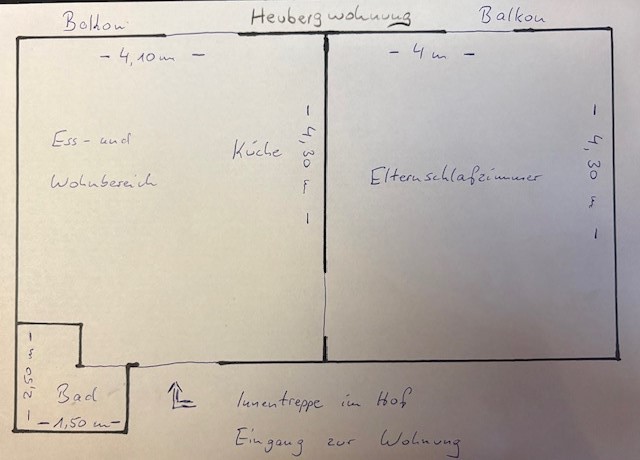 Balkon Heubergwohnung Balkon
- 4,10 m - - 4 m -
Ess- und
Wohnbereich
Küche
- 4,30 m -
Elternschlafzimmer
- 4,30 m -
- 2,50 m -
Bad
- 1,50 m -
Innentreppe im Hof
Eingang zur Wohnung